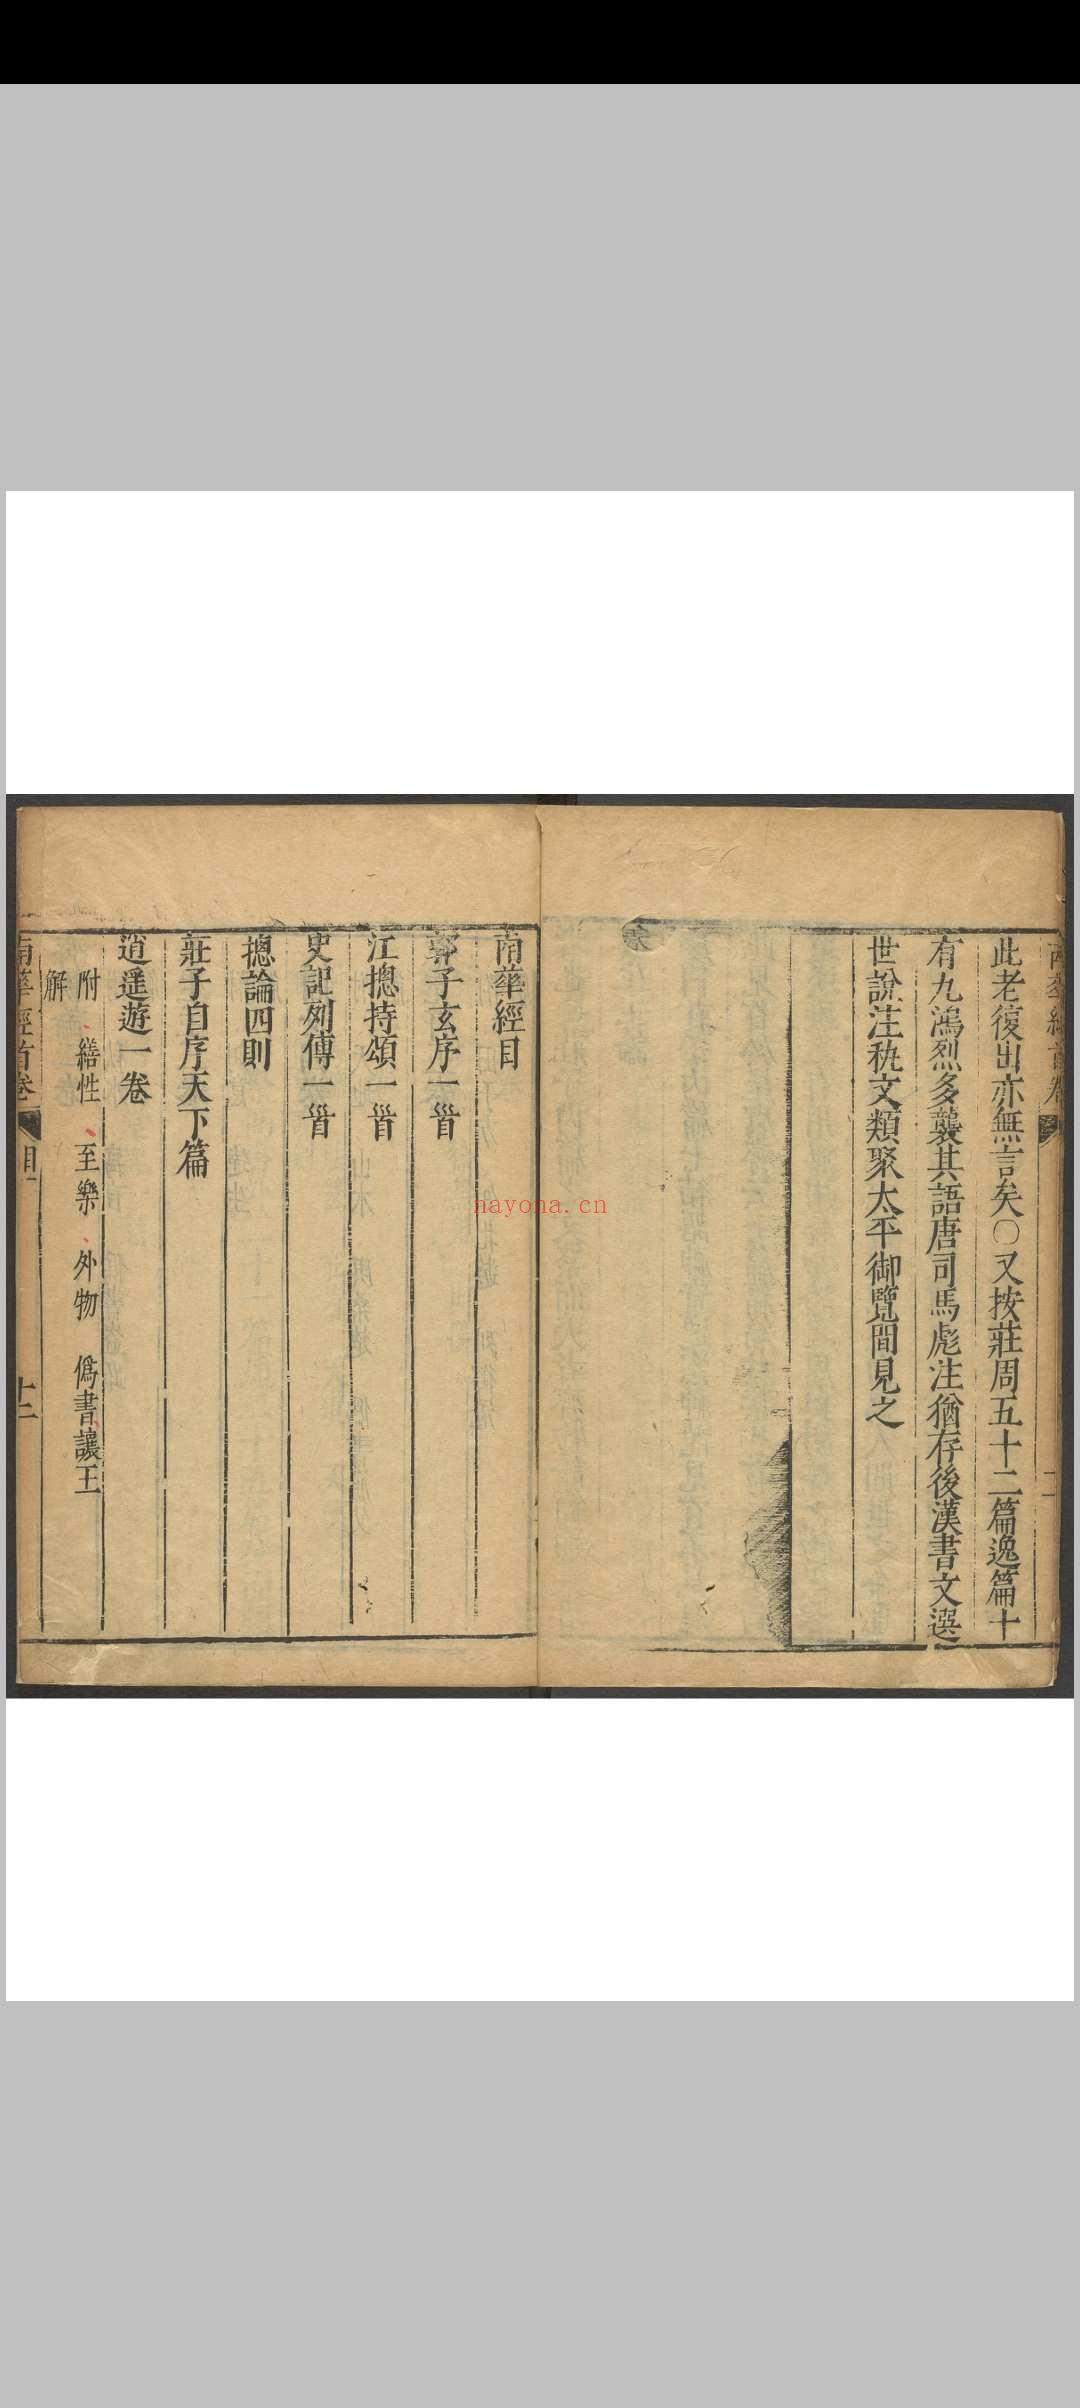 此老復出亦無言矣〇又按莊周五十二篇逸篇十
有九鴻烈多襲其語唐司馬彪注猶存後漢書文選
世說注秇文類聚太平御覽間見之
南華經目
郭子玄序一首
江摠持頌一首
史記列傳一首
摠論四則
莊子自序天下篇
逍遥遊一卷
附 繕性 至樂 外物 僞書讓王
解
南華經首卷 目 十二
nayona.cn